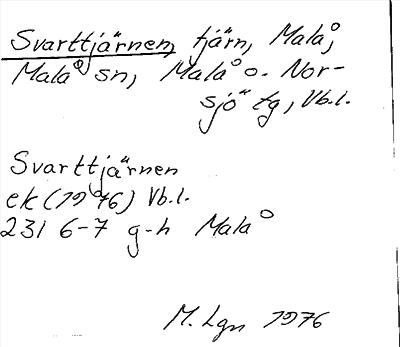 Svarttjärnen, tjärn, Malå,
Malå sn, Malå o. Nor-
sjö tg, Vb.l.
Svarttjärnen
ek (1976) Vb.l.
231 6-7 g-h Malå
M. Lgn 1976